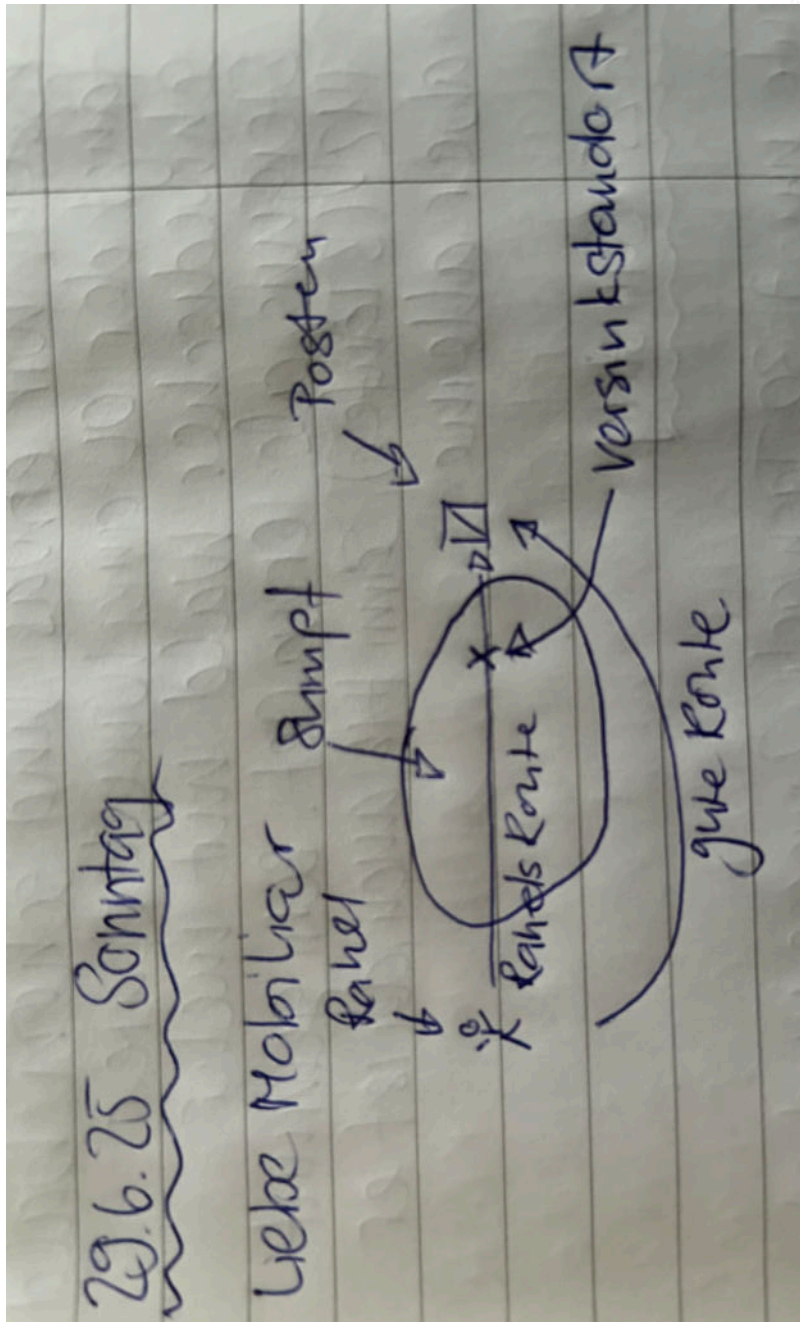 29.6.25 Sonntag
Liebe Mobiliar
Rahel
Sumpf
Posten
x
Rahels Route
Versinkstandort
gute Route